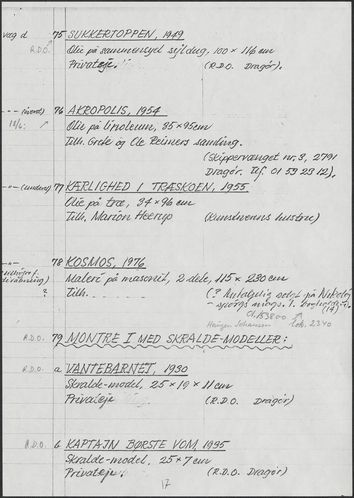 væg d 75 SUKKERTOPPEN, 1949
R.D.O. Olie på sammensyet sejldug, 100 × 116 cm
Privateje. (R.D.O. Dragør).
76 AKROPOLIS, 1954
Olie på linoleum, 85 × 95 cm
Tilh. Grete og Ole Reimers samling.
(Skippervænget nr. 3, 2791
Dragør. Tlf. 01 53 23 12).
77 KÆRLIGHED I TRÆSKOEN, 1955
Olie på træ, 34 × 96 cm
Tilh. Marion Heerup (Kunstnerens hustru)
78 KOSMOS, 1976
Maleri på masonit, 2-dele, 115 × 230 cm
? Tilh. (? Antagelig solgt på Nikolaj
(17)
lok. 2340
R.D.O. 79 MONTRE I MED SKRALDE-MODELLER:
R.D.O. a VANTEBARNET, 1930
Skralde-model, 25 × 19 × 11 cm
Privateje (R.D.O. Dragør)
R.D.O. b KAPTAJN BØRSTE VOM 1935
Skralde-model, 25 × 7 cm
Privateje. (R.D.O. Dragør)
17